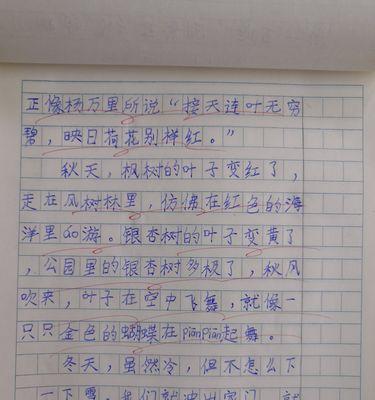 正像杨万里所说“接天连叶无穷
碧，映日荷花别样红。”
秋天，枫树的叶子变红了，
走在风树林里，仿佛在红色的海
洋里áo游。银杏树的叶子变黄了
，公园里的银杏树多极了，秋风
吹来，叶子在空中飞舞，就像一
只只金色的蝴蝶在piānpiān起舞。
冬天，虽然冷，但不怎么下
一下雪，我们就冲出家门，就